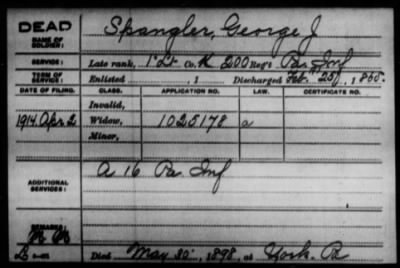 DEAD
NAME OF SOLDIER: Spangler, George J
SERVICE: Late rank, 1" Lt Co. K 200 Reg't Pa. Inf
TERM OF SERVICE: Enlisted , 1 Discharged Feb. 25, 1865.
DATE OF FILING. CLASS. APPLICATION NO. LAW. CERTIFICATE NO.
Invalid,
1914 Apr 2 Widow, 1025178 a
Minor,
ADDITIONAL SERVICES: A 16 Pa. Inf
REMARKS:
Died May 30, 1898, at York. Pa